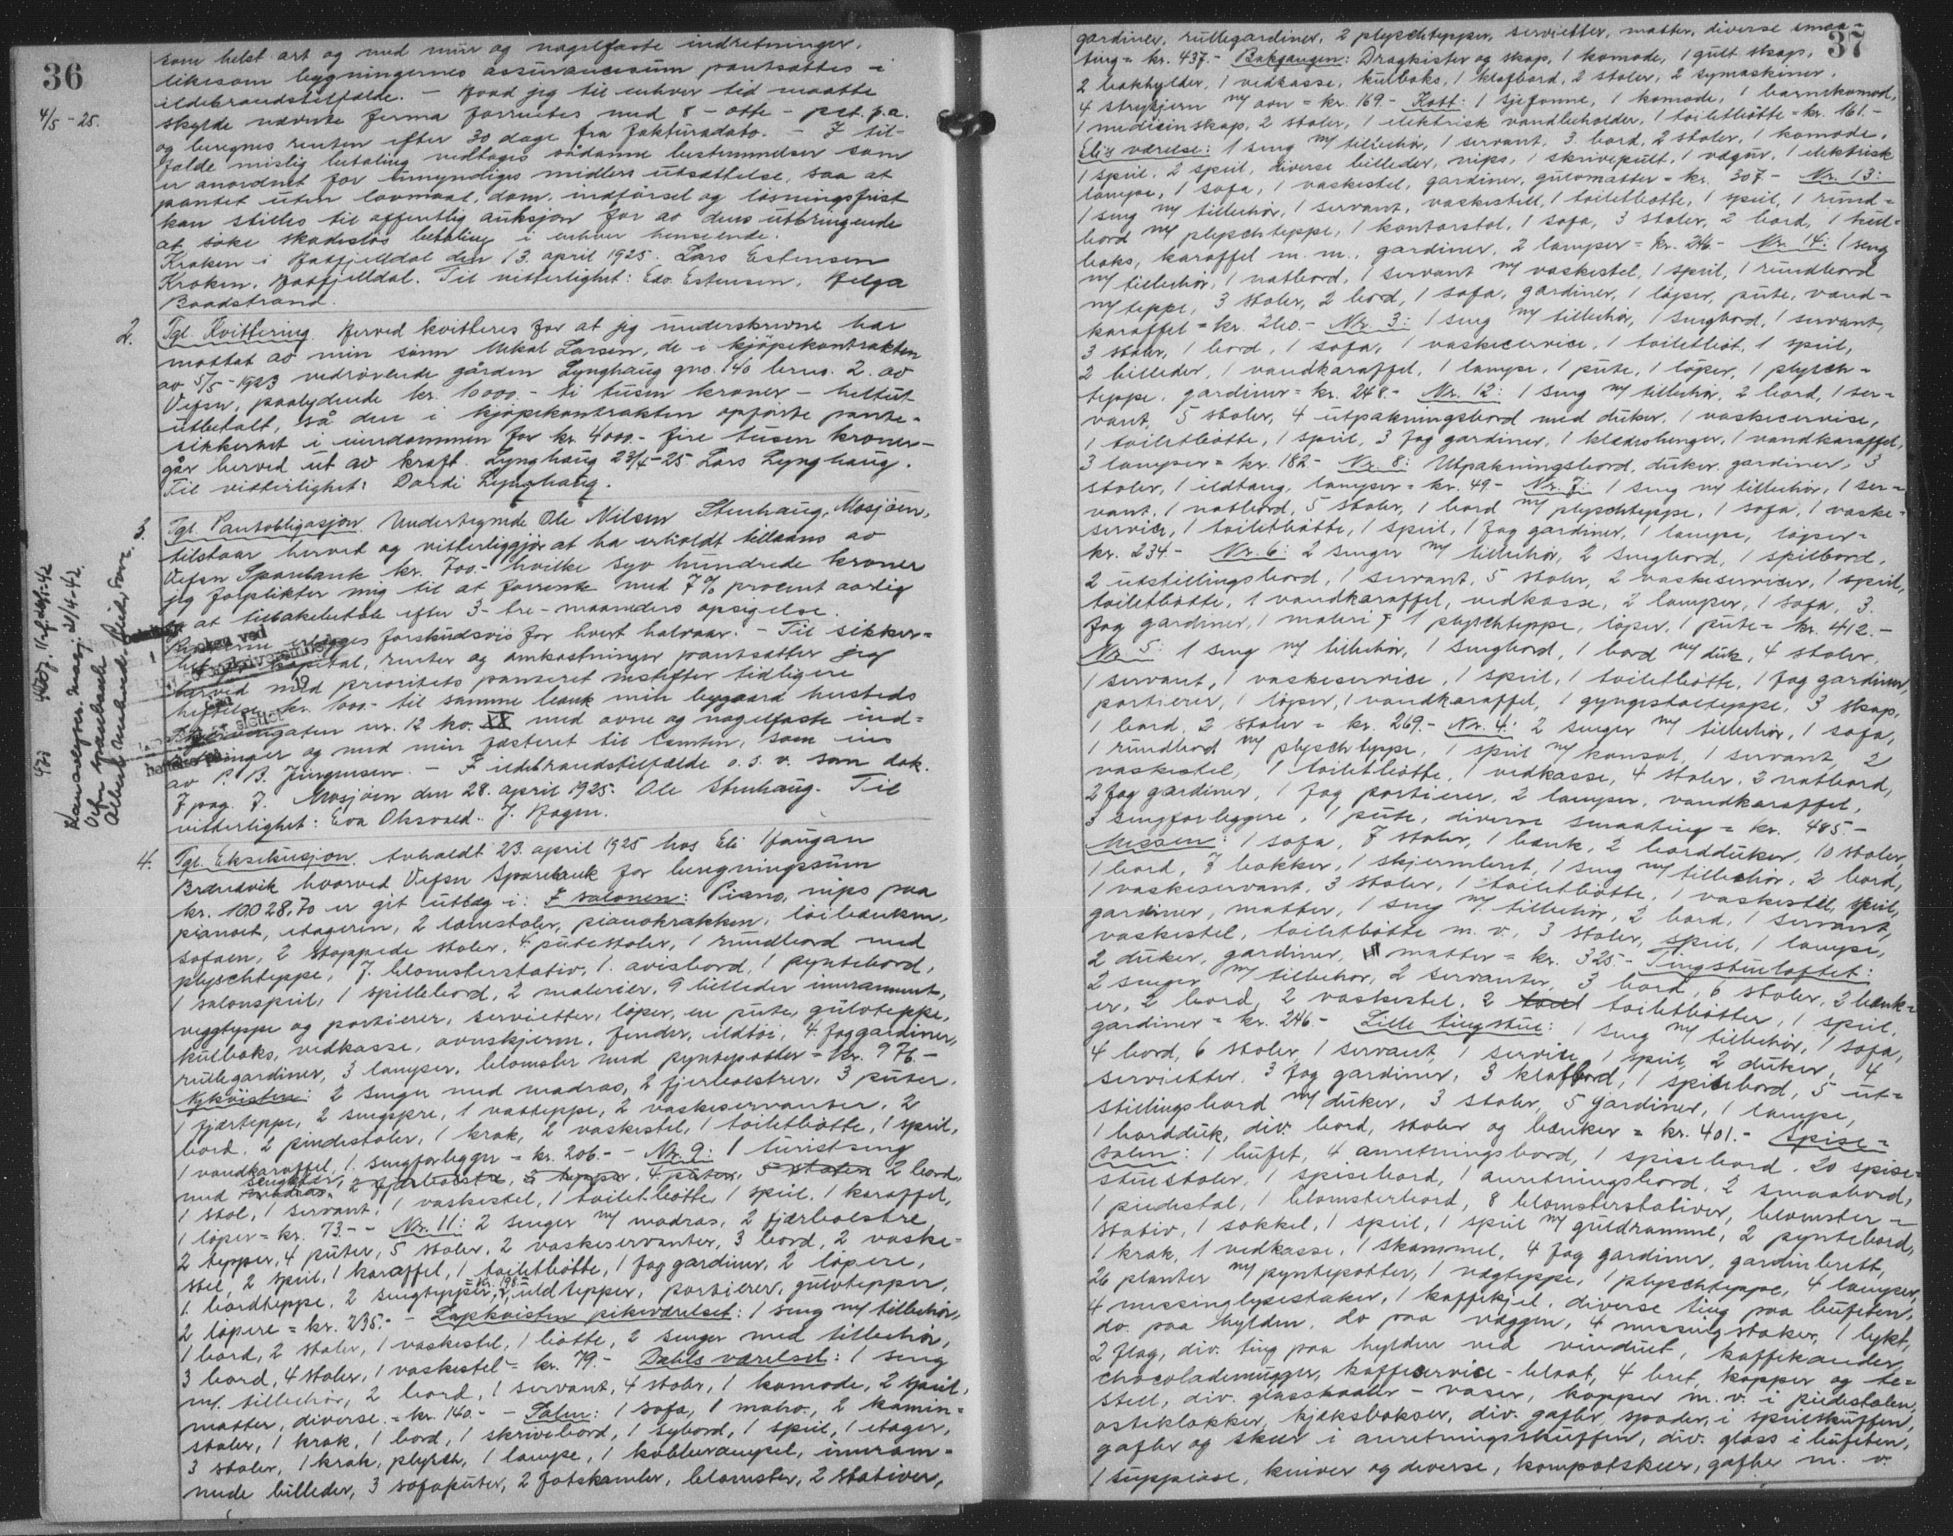 36
4/5 - 25.
som helst art og med mur og nagelfaste indretninger,
likesom bygningernes assurancesum pantsættes i
ildebrandstilfælde. - Hvad jeg til enhver tid maatte
skylde nævnte firma forrentes med 8 - otte - pct. p.a.
og beregnes renten efter 30 dage fra fakturadato. - I til-
fælde mislig betaling vedtages sådanne bestemmelser som
er anordnet for umyndiges midlers utsættelse, saa at
pantet uten lovmaal, dom, indførsel og løsningsfrist
kan stilles til offentlig auksjon for av dens utbringende
at søke skadesløs betaling i enhver henseende.
Kroken i Hatfjelldal den 13. april 1925. Lars Estensen
Kroken, Hatfjelldal. Til vitterlighet: Edv. Estensen. Helga
Baadstrand.
2. Tgl. Kvittering. Herved kvitteres for at jeg underskrevne har
mottat av min sønn Mikal Larsen, de i kjøpekontrakten
av 5/5 - 1923 vedrørende gården Lynghaug gno. 140 brno. 2. av
Vefsn, paalydende kr. 10000 - ti tusen kroner - heltut
utbetalt, så den i kjøpekontrakten opførte pante-
sikkerhet i eiendommen for kr. 4000.- fire tusen kroner -
går herved ut av kraft. Lynghaug 23/4 - 25 Lars Lynghaug.
Til vitterlighet: Dardi Lynghaug.
3. Tgl. Pantobligasjon. Undertegnede Ole Nilsen Stenhaug, Mosjøen,
tilstaar herved og vitterliggjør at ha erholdt tillaans av
Vefsn Sparebank kr. 700.- hvilke syv hundrede kroner
jeg forplikter mig til at forrente med 7% procent aarlig
og at tilbakebetale efter 3 - tre - maaneders opsigelse.
Renterne erlægges forskudsvis for hvert halvaar. - Til sikker-
het for kapital, renter og omkostninger pantsætter jeg
herved med prioritets panteret næstefter tidligere
heftelse kr. 1000.- til samme bank min bygaard husteds
nr. 12 kv. XX med ovne og nagelfaste ind-
retninger og med min festeret til tomten, som eies
av P. B. Jürgensen. - I ildebrandstilfælde o. s. v. som dok.
7 pag. 7. Mosjøen den 28. april 1925. Ole Stenhaug. Til
vitterlighet: Eva Olsvold. J. Hagen.
4. Tgl. Eksekusjon. Avholdt 23. april 1925 hos Eli Haugan
Brændvik hvorved Vefsn Sparebank for beregningssum
kr. 10028,70 er git utlæg i: I salonen: Piano, nips paa
pianoet, etageren, 2 lænestoler, pianokrakken, loibænken,
sofaen, 2 stoppede stoler, 4 putestoler, 1 rundbord med
plyschteppe, 7. blomsterstativ, 1. avisbord, 1 pyntebord,
1 salonspeil, 1 spillebord, 2 malerier, 9 billeder innrammet,
veggteppe og portierer, servietter, løper, en pute, gulvteppe,
kulboks, vedkasse, ovnskjerm, fender, ildtøi, 4. fag gardiner,
rullegardiner, 3 lamper, blomster med pyntepotter = kr. 976 -
Nykvisten: 2 senger med madras, 2 fjerbolstrer, 3 puter,
1 fjærteppe, 2 sengspre, 1 vatteppe, 2 vaskeservanter, 2
bord, 2 pindestoler, 1 krak, 2 vaskestel, 1 toiletbøtte, 1 speil,
1 vandkaraffel, 1. sengforlegger = kr. 206.- - Nr. 9: 1 turistseng
med sengklær, 2 fjærbolstre, 2 tepper, 4 puter, 5 stoler 2 bord,
1 stol, 1 servant, 1 vaskestel, 1 toiletbøtte, 1 speil, 1 karaffel,
1 løper = kr. 73.- - Nr. 11: 2 senger m/ madras, 2 fjærbolstre
2 tepper, 4 puter, 5 stoler, 2 vaskeservanter, 3 bord, 2 vaske-
stel, 2 speil, 1 karaffel, 1 toiletbøtte, 1 fag gardiner, 2 løpere,
1. bordteppe, 2 sengtepper = kr. 198.- 2 uldtepper, portierer, gulvtepper,
2 løpere = kr. 235.- - Lapkvisten pikeværelset: 1 seng m/ tilbehør,
1 bord, 2 stoler, 1 vaskestel, 1 bøtte, 2 senger med tilbehør,
3 bord, 4 stoler, 1 vaskestel = kr. 79.- Dahls værelset: 1 seng
m/ tilbehør, 2 bord, 1 servant, 4 stoler, 1 komode, 2 speil,
matter, diverse = kr. 140.- - Salen: 1 sofa, 1 , 2 kamin-
stoler, 1 krak, 1 bord, 1 skrivebord, 1 sybord, 1 speil, 1 etager,
3 stoler, 1 krak, plysch, 1 lampe, 1 kobberampel, innram-
mede billeder, 3 sofaputer, 2 fotskamler, blomster, 2 stativer,
Kansavlyses. Mosj. 21/4-42.
Vefsn sparebank
37
gardiner, rullegardiner, 2 plyschtepper, servietter, matter, diverse smaa-
ting = kr. 437.- Bakgangen: Dragkister og skap, 1 komode, 1 gult skap,
2 bokhylder, 1 vedkasse, kulboks, 1 klafbord, 2 stoler, 2 symaskiner,
4 strykjern m/ ovn = kr. 169.- Kott: 1 sjefonne, 1 komode, 1 barnekomode,
1 medicinskap, 2 stoler, 1 elektrisk vandbeholder, 1 toiletbøtte = kr. 161.-
Elis værelse: 1 seng m/ tilbehør, 1 servant, 3. bord, 2 stoler, 1 komode,
1 speil, 2 speil, diverse billeder, nips, 1 skrivepult, 1 vægur, 1 elektrisk
lampe, 1 sofa, 1 vaskestel, gardiner, gulvmatter = kr. 307.- Nr. 13:
1 seng m/ tilbehør, 1 servant, vaskestell, 1 toiletbøtte, 1 speil, 1 rund-
bord m/ plyschteppe, 1 kontorstol, 1 sofa, 3 stoler, 2 bord, 1 kul-
boks, karaffel m. m., gardiner, 2 lamper = kr. 246.- Nr. 14: 1 seng
m/ tilbehør, 1 natbord, 1 servant m/ vaskestel, 1 speil, 1 rundbord
m/ teppe, 3 stoler, 2 bord, 1 sofa, gardiner, 1 løper, pute, vand-
karaffel = kr. 260.- Nr. 3: 1 seng m/ tilbehør, 1 sengbord, 1 servant,
3 stoler, 1 bord, 1 sofa, 1 vaskeservice, 1 toiletbøt, 1 speil,
2 billeder, 1 vandkaraffel, 1 lampe, 1 pute, 1 løper, 1 plysch-
teppe, gardiner = kr. 248.- Nr. 12: 1 seng m/ tilbehør, 2 bord, 1 ser-
vant, 5 stoler, 4 utpakningsbord med duker, 1 vaskeservise,
1 toiletbøtte, 1 speil, 3 fag gardiner, 1 klædeshenger, 1 vandkaraffel,
3 lamper = kr. 182 - Nr. 8: Utpakningsbord, duker, gardiner, 3
stoler, 1 ildtang, lamper = kr. 49 - Nr. 7: 1 seng m/ tilbehør, 1 ser-
vant, 1 natbord, 5 stoler, 1 bord m/ plyschteppe, 1 sofa, 1 vaske-
service, 1 toiletbøtte, 1 speil, 1 fag gardiner, 1 lampe, løper =
kr. 234 - Nr. 6: 2 senger m/ tilbehør, 2 sengbord, 1 spilbord,
2 utstillingsbord, 1 servant, 5 stoler, 2 vaskeservicer, 1 speil,
toiletbøtte, 1 vandkaraffel, vedkasse, 2 lamper, 1 sofa, 3.
fag gardiner, 1 maleri, 1 plyschteppe, løper, 1 pute = kr. 412.-
Nr. 5: 1 seng m/ tilbehør, 1 sengbord, 1 bord m/ duk, 4 stoler,
1 servant, 1 vaskeservice, 1 speil, 1 toiletbøtte, 1 fag gardiner,
portierer, 1 løper, 1 vandkaraffel, 1 gyngestolteppe, 3 skap,
1 bord, 2 stoler = kr. 269.- Nr. 4: 2 senger m/ tilbehør, 1 sofa,
1 rundbord m/ plyschteppe, 1 speil m/ konsol, 1 servant, 2
vaskestel, 1 toiletbøtte, 1 vedkasse, 4 stoler, 2 natbord,
2 fag gardiner, 1 fag portierer, 2 lamper, vandkaraffel,
3 sengforleggere, 1 pute, diverse smaating = kr. 485 -
Messen: 1 sofa, 7 stoler, 1 bænk, 2 bordduker, 10 stoler,
1 bord, 7 bakker, 1 skjermbret, 1 seng m/ tilbehør, 2 bord,
1 vaskeservant, 3 stoler, 1 toiletbøtte, 1 vaskestel, speil,
gardiner, matter, 1 seng m/ tilbehør, 2 bord, 1 servant,
vaskestel, toiletbøtte m. v. 3 stoler, speil, 1 lampe,
2 duker, gardiner, matter = kr. 325 - Tingstueloftet:
2 senger m/ tilbehør, 2 servanter, 3 bord, 6 stoler, 2 bænk-
er, 2 bord, 2 vaskestel, 2 toiletbøtter, 1 speil,
gardiner = kr. 246.- Lille tingstue: 1 seng m/ tilbehør, 1 sofa,
4 bord, 6 stoler, 1 servant, 1 service, 1 speil, 2 duker, 4
servietter, 3 fag gardiner, 3 klafbord, 1 spisebord, 5 ut-
stillingsbord m/ duker, 3 stoler, 5 gardiner, 1 lampe,
1 bordduk, div. bord, stoler og bænker = kr. 401.- Spise-
salen: 1 bufet, 4 anretningsbord, 1 spisebord, 20 spise-
stuestoler, 1 spisebord, 1 anretningsbord, 2 smaabord,
1 piedestal, 1 blomsterbord, 8 blomsterstativer, blomster-
stativ, 1 sokkel, 1 speil, 1 speil m/ guldramme, 2 pyntebord,
1 krak, 1 vedkasse, 1 skammel, 4 fag gardiner, gardinbrett,
26 planter m/ pyntepotter, 1 vægteppe, 1 plyschteppe, 4 lamper,
4 messinglysestaker, 1 kaffekjel, diverse ting paa bufeten,
do. paa hylden, do paa væggen, 4 messingstaker, 1 lykt,
2 flag, div. ting paa hylden ved vinduet, kaffekander,
chocolademugger, kaffeservice - blaat, 4 bret, kopper og te-
stell, div. glasskaaler - vaser, kopper m. v. i piedestalen,
osteklokker, kjeksbokser, div. gafler, spader, i speilskuffen,
gafler og skeer i anretningsskuffen, div. glass i bufeten,
1 suppeøse, kniver og diverse, kompotskeer, gafler m. v.